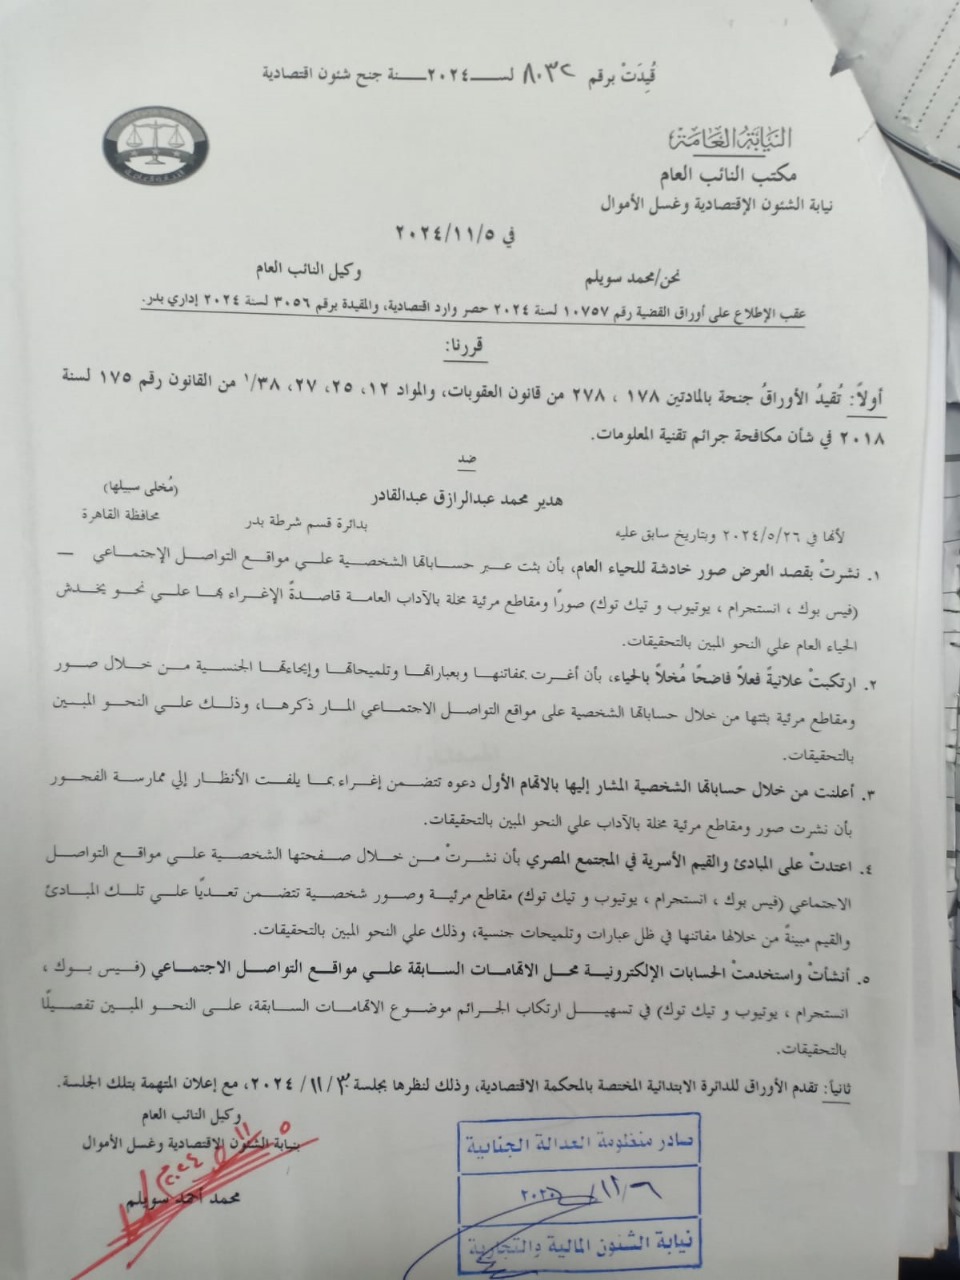 قُيِدَتْ برقم ٨٠٣٢ لســـ٢٠٢٤ــــنة جنح شئون اقتصادية
النيابة العامة
مكتب النائب العام
نيابة الشئون الإقتصادية وغسل الأموال
في ٢٠٢٤/١١/٥
نحن/محمد سويلم وكيل النائب العام
عقب الإطلاع على أوراق القضية رقم ١٠٧٥٧ لسنة ٢٠٢٤ حصر وارد اقتصادية، والمقيدة برقم ٣٠٥٦ لسنة ٢٠٢٤ إداري بدر.
قررنا:
أولاً: تُقيدُ الأوراقُ جنحة بالمادتين ١٧٨ ، ٢٧٨ من قانون العقوبات، والمواد ١٢، ٢٥، ٢٧، ١/٣٨ من القانون رقم ١٧٥ لسنة
٢٠١٨ في شأن مكافحة جرائم تقنية المعلومات.
ضد
هدير محمد عبدالرازق عبدالقادر (مُخلى سبيلها)
لأنها في ٢٠٢٤/٥/٢٦ وبتاريخ سابق عليه بدائرة قسم شرطة بدر محافظة القاهرة
١. نشرتْ بقصد العرض صور خادشة للحياء العام، بأن بثت عبر حساباتها الشخصية علي مواقع التواصل الإجتماعي –
(فيس بوك ، انستجرام ، يوتيوب و تيك توك) صورًا ومقاطع مرئية مخلة بالآداب العامة قاصدةً الإغراء بها علي نحو يخدش
الحياء العام علي النحو المبين بالتحقيقات.
٢. ارتكبتْ علانيةً فعلاً فاضحًا مُخلاً بالحياء، بأن أغرت بمفاتنها وبعباراتها وتلميحاتها وإيحاءتها الجنسية من خلال صور
ومقاطع مرئية بثتها من خلال حساباتها الشخصية على مواقع التواصل الاجتماعي المار ذكرها، وذلك علي النحو المبين
بالتحقيقات.
٣. أعلنت من خلال حساباتها الشخصية المشار إليها بالاتهام الأول دعوه تتضمن إغراء بما يلفت الأنظار إلي ممارسة الفجور
بأن نشرت صور ومقاطع مرئية مخلة بالآداب علي النحو المبين بالتحقيقات.
٤. اعتدتْ على المبادئ والقيم الأسرية في المجتمع المصري بأن نشرتْ من خلال صفحتها الشخصية علي مواقع التواصل
الاجتماعي (فيس بوك ، انستجرام ، يوتيوب و تيك توك) مقاطع مرئية وصور شخصية تتضمن تعديًا علي تلك المبادئ
والقيم مبينةً من خلالها مفاتنها في ظل عبارات وتلميحات جنسية، وذلك علي النحو المبين بالتحقيقات.
٥. أنشأتْ واستخدمتْ الحسابات الإلكترونية محل الاتهامات السابقة علي مواقع التواصل الاجتماعي (فيس بوك ،
انستجرام ، يوتيوب و تيك توك) في تسهيل ارتكاب الجرائم موضوع الاتهامات السابقة، على النحو المبين تفصيلًا
بالتحقيقات.
ثانياً: تقدم الأوراق للدائرة الابتدائية المختصة بالمحكمة الاقتصادية، وذلك لنظرها بجلسة ٣٠/ ١١ / ٢٠٢٤، مع إعلان المتهمة بتلك الجلسة.
وكيل النائب العام
نيابة الشئون الإقتصادية وغسل الأموال
محمد أحمد سويلم
صادر منظومة العدالة الجنائية
١١/٦
نيابة الشئون المالية والتجارية